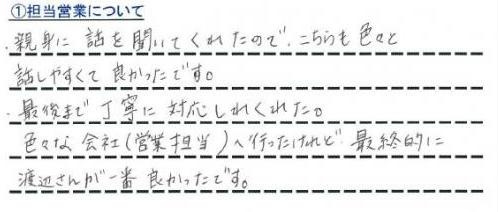 ①担当営業について
・親身に話を聞いてくれたので、こちらも色々と
話しやすくて良かったです。
・最後まで丁寧に対応しれくれた。
色々な会社(営業担当)へ行ったけれど 最終的に
渡辺さんが一番良かったです。